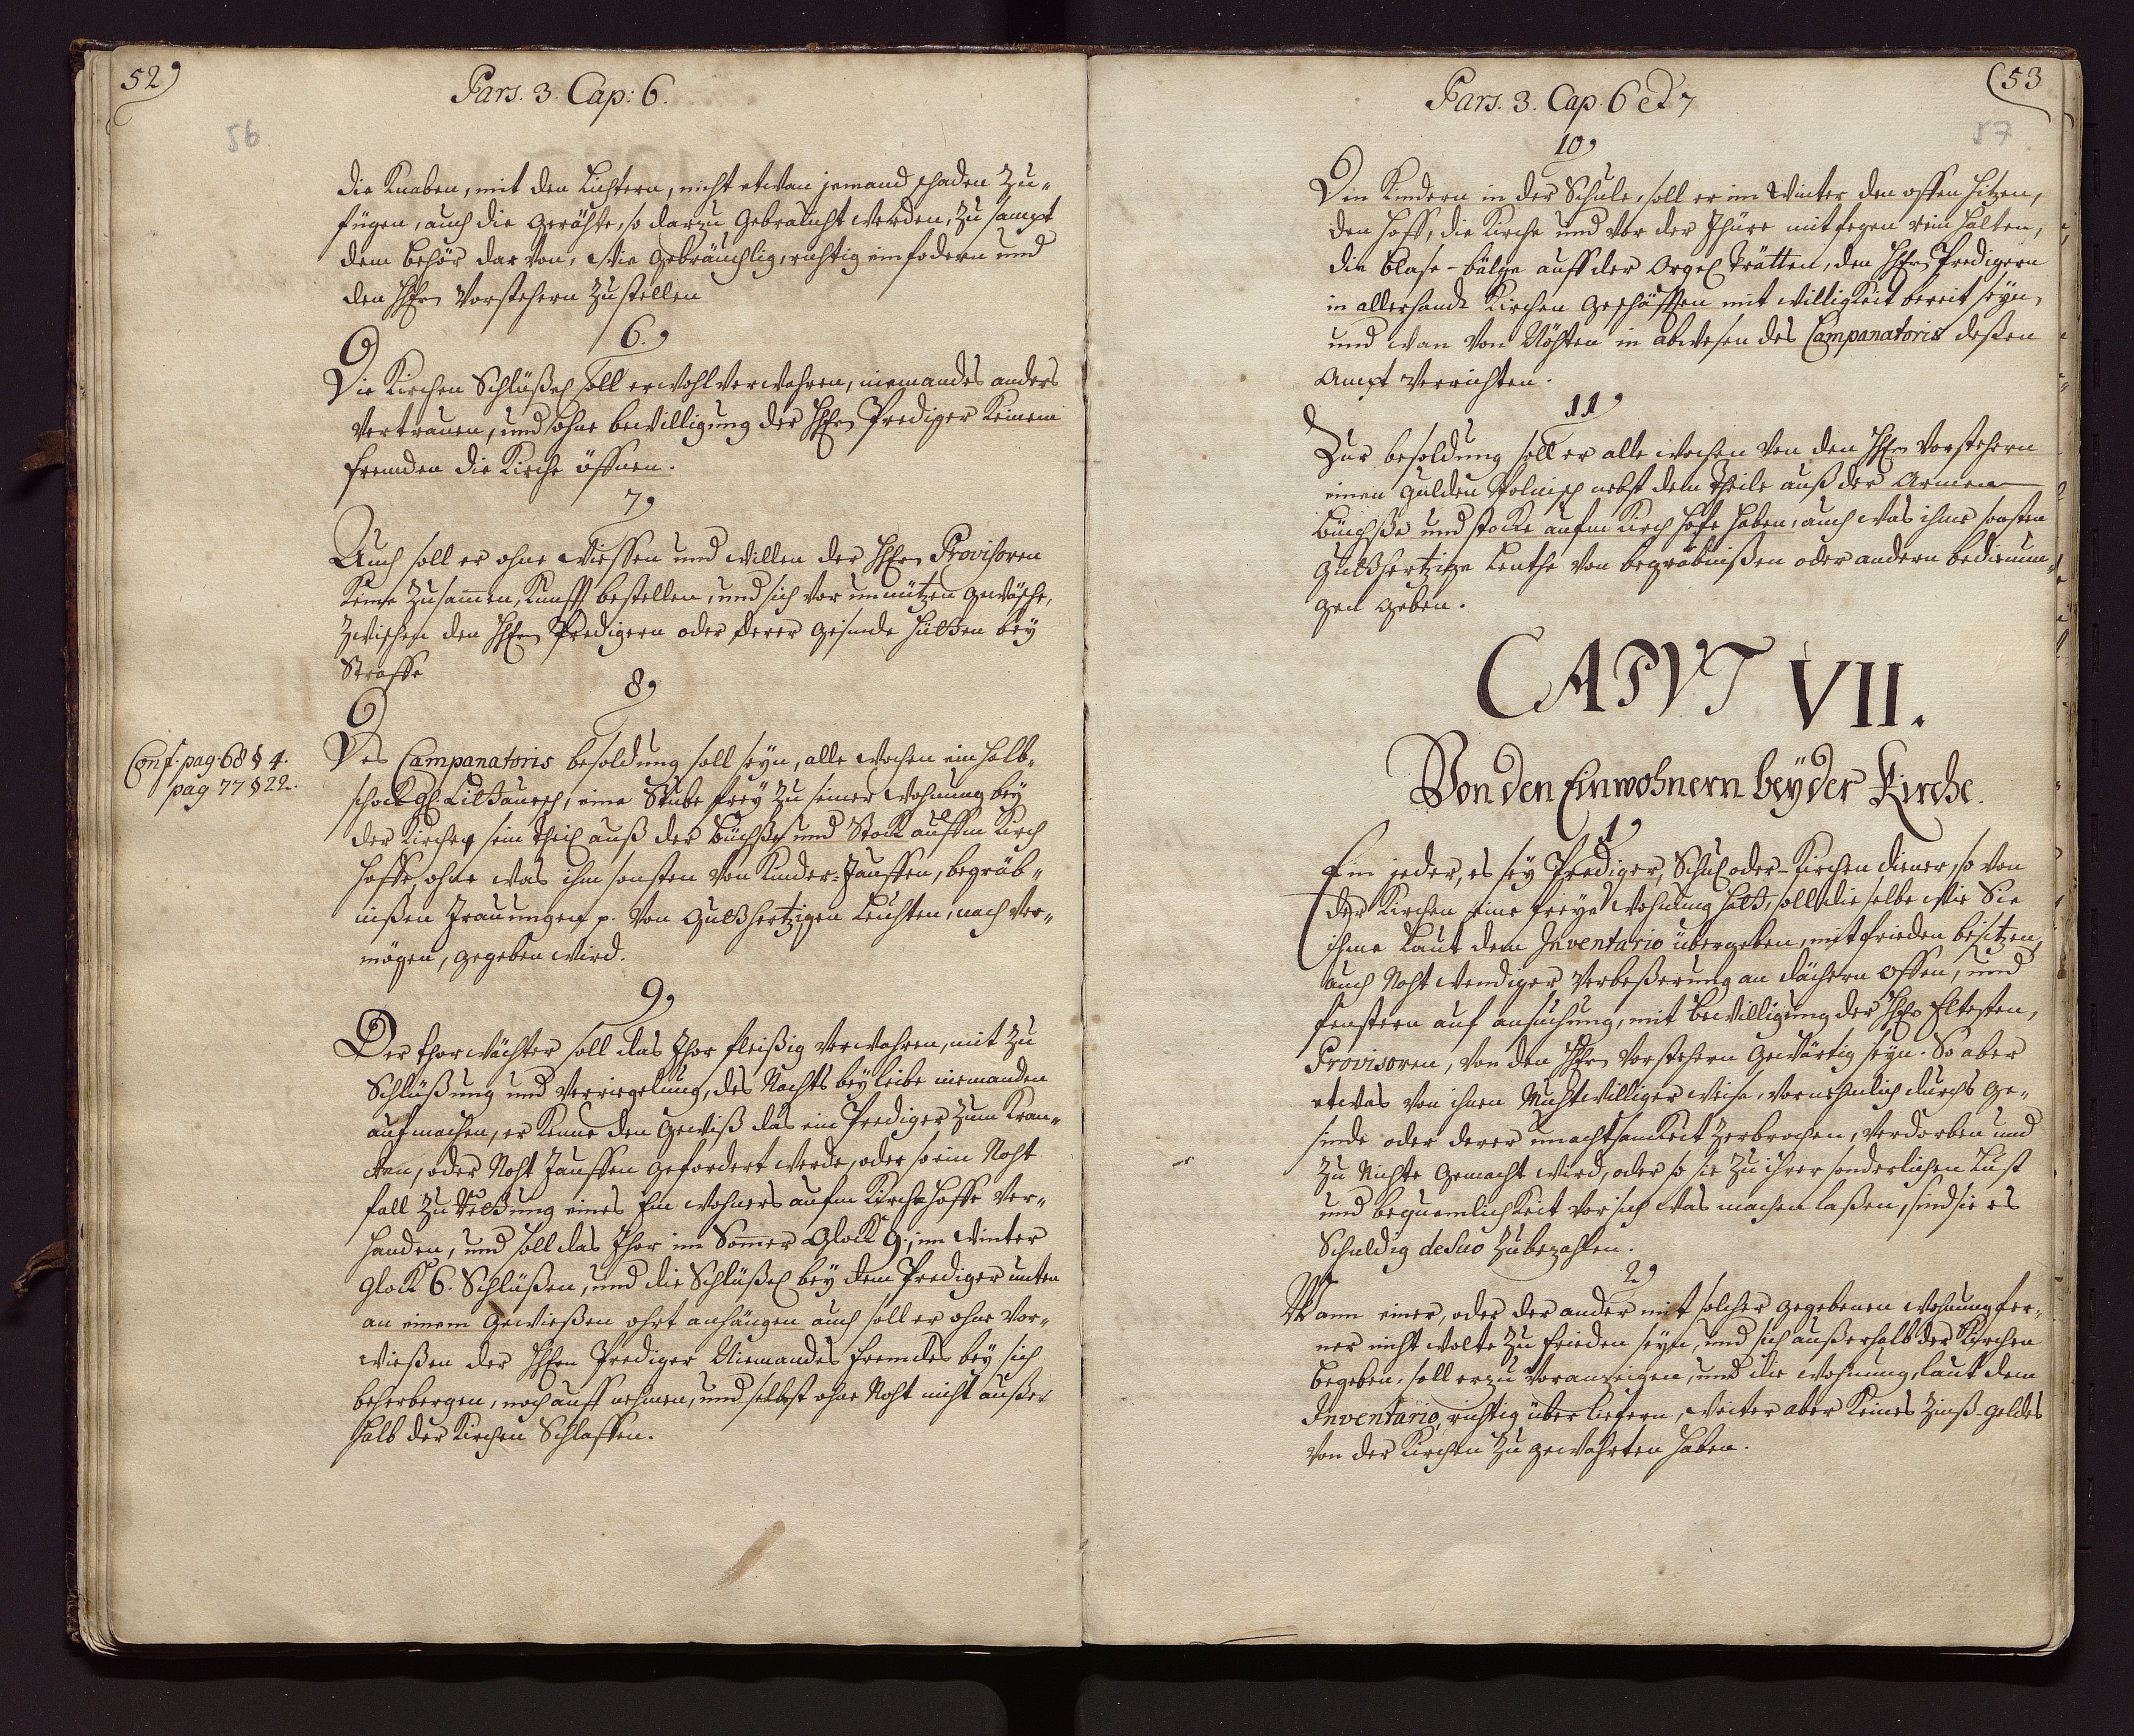 52)
Pars. 3. Cap: 6.
56
die Knaben, mit den Lichtern, nicht etwan jemand schaden Zu„
fügen, auch die Gerähte, so darzu Gebraucht werden, Zu sampt
dem behör dar von, Wie gebräuchlig, richtig einfodern und
den HhErn Vorstehern Zustellen
6.)
Die Kirchen Schlüßel soll er wohl verwahren, niemandes anders
Vertrauen, und ohne bewilligung der HhErn Prediger Keinem
fremden die Kirche öffnen.
7)
Auch soll er ohne Wiessen und willen der HhErn Provisoren
Keine Zusamen Kunfft bestellen, und sich vor unnützen gewäsche,
Zwischen den HhErn Predigern oder derer Gesinde hütten bey
Straffe
8)
Conf. pag. 68 § 4.
pag 77 § 22.
Des Campanatoris besoldung soll seyn, alle Wochen ein halb„
schock gl. Littausch, eine Stube frey Zu seiner Wohnung bey
der Kirche, sein theil auß der büchße und Stock auffm Kirch
hoffe, ohne was ihm sonsten von Kinder-Tauffen, begräb„
nißen Trauungen p. von Gutthertzigen Leuhten, nach Ver„
mögen, gegeben wird.
9)
Der thorwächter soll das Thor fleißig verwahren, mit Zu
Schlüßung und Verriegelung, des Nachts bey leibe niemanden
aufmachen, er Kenne den Gewiß das ein Prediger Zum Kran„
cken, oder Noht Tauffen gefordert werde, oder so ein Noht
fall Zu Rettung eines Ein wohners aufm Kirchhoffe Ver„
handen, und soll das Thor im Somer Glock 9., im Winter
Glock 6. Schlüßen, und die Schlüßel bey dem Prediger unten
an einem Gewießen ohrt anhängen auch soll er ohne Vor„
wießen der HhErn Prediger Niemandes fremdes bey sich
beherbergen, noch auff nehmen, und selbst ohne Noht nicht außer
halb der Kirchen Schlaffen.
(53
Pars. 3. Cap. 6 et 7
57
10)
Den Kindern in der Schule, soll er im Winter den offen hitzen,
den Hoff, die Kirche und vor der Thüre mit fegen rein halten,
die blase-bälge auff der Orgel trätten, den HhErn Predigern
in allerhandt Kirchen Geschäfften mit willigkeit bereit seyn,
und wan von Nöhten in abwesen des Campanatoris deßen
Ampt Verrichten.
11)
Zur besoldung soll er alle wochen von den HhErn Vorstehern
einen Gulden Polnisch nebst dem theile auß der Armen
büchße und stocke aufm Kirch hofe haben, auch was ihme sonsten
Gutthertzige Leuthe von begräbnißen oder andern bedienun„
gen geben.
CAPVT VII.
Von den Einwohnern bey der Kirche.
1)
Ein jeder, es sey Prediger, Schul oder-Kirchen diener, so von
der Kirchen eine freye Wohnung hatt, soll die selbe wie Sie
ihme Laut dem Inventario übergeben, mit frieden besitzen,
auch Noht wendiger Verbeßerung an dächern offen, und
fenstern auf ansuchung, mit bewilligung der HhErn Eltesten,
Provisoren, von den HhErn Vorstehern Gewärtig seyn. So aber
etwas von ihnen Muhtwilliger weise, vornehmlich durchs Ge„
sinde oder derer unachtsamkeit Zerbrochen, verdorben und
Zu Nichte gemacht wird, oder so sie Zu ihrer sonderlichen Lust
und bequemlichkeit vor sich was machen laßen, sind sie es
Schuldig de suo Zubezahlen.
2)
Wann einer, oder der ander mit solcher gegebenen Wohnung fer„
ner nicht wolte Zu frieden seyn, und sich außerhalb der Kirchen
begeben, soll er zu voran zeigen, und die Wohnung, laut dem
Inventario, richtig über liefern, weiter aber Keines Zinß-geldes
von der Kirchen Zu gewahrten haben.